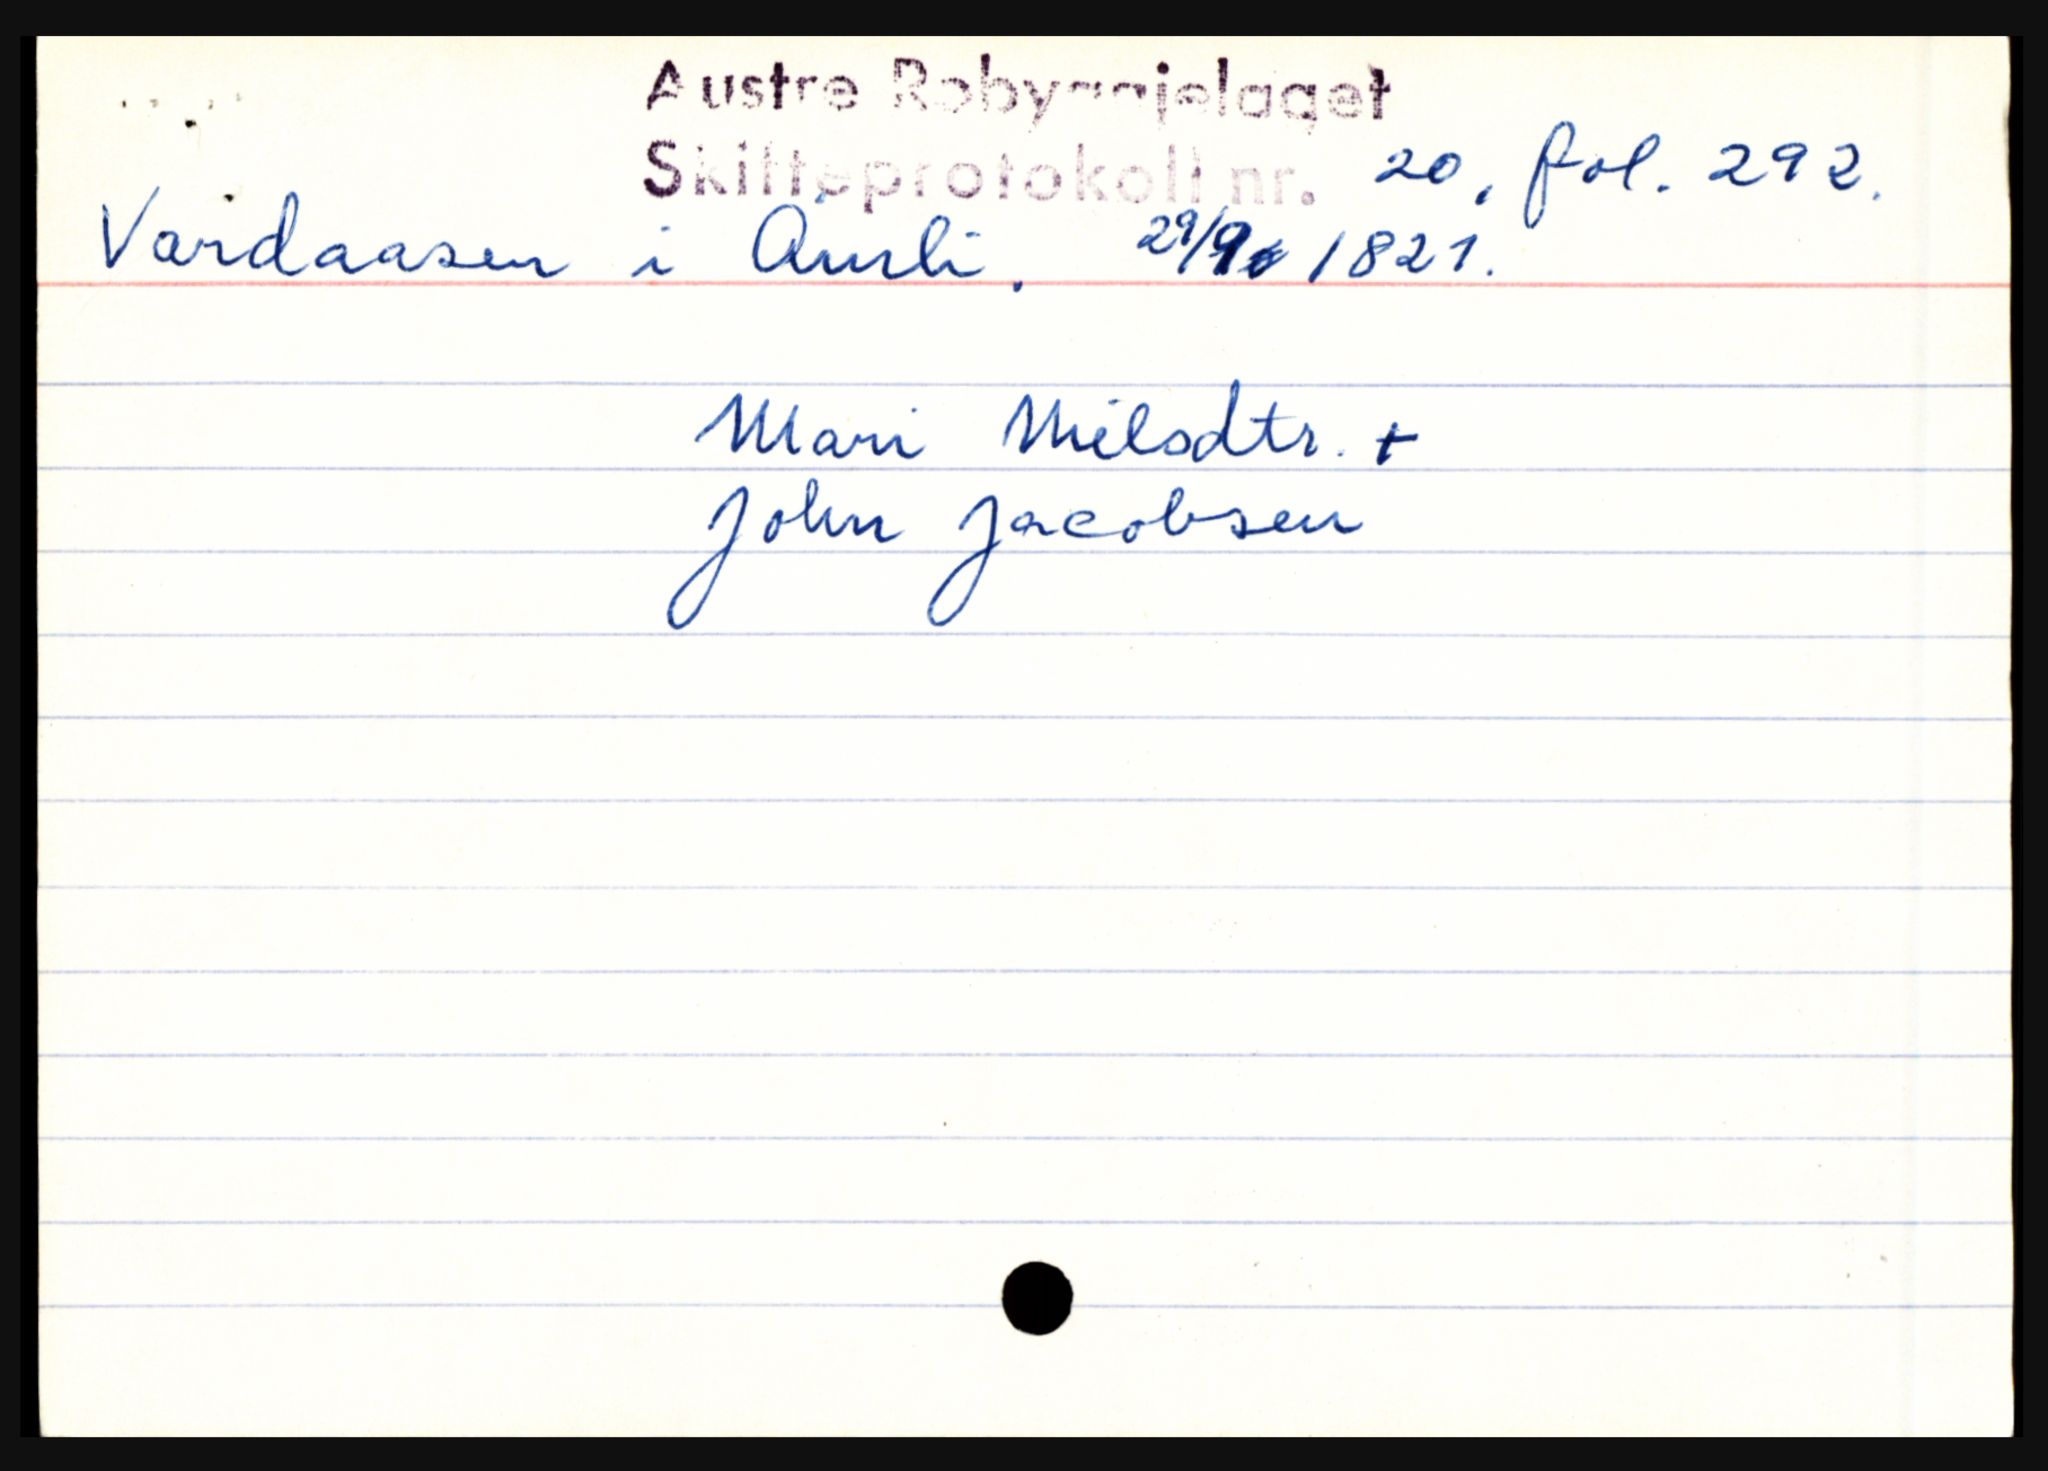 Austre Robyggjelaget
Skifteprotokoll nr. 20, fol. 292.
Vardaasen i Åmli. 29/9 1821.
Mari Nilsdtr. +
John Jacobsen